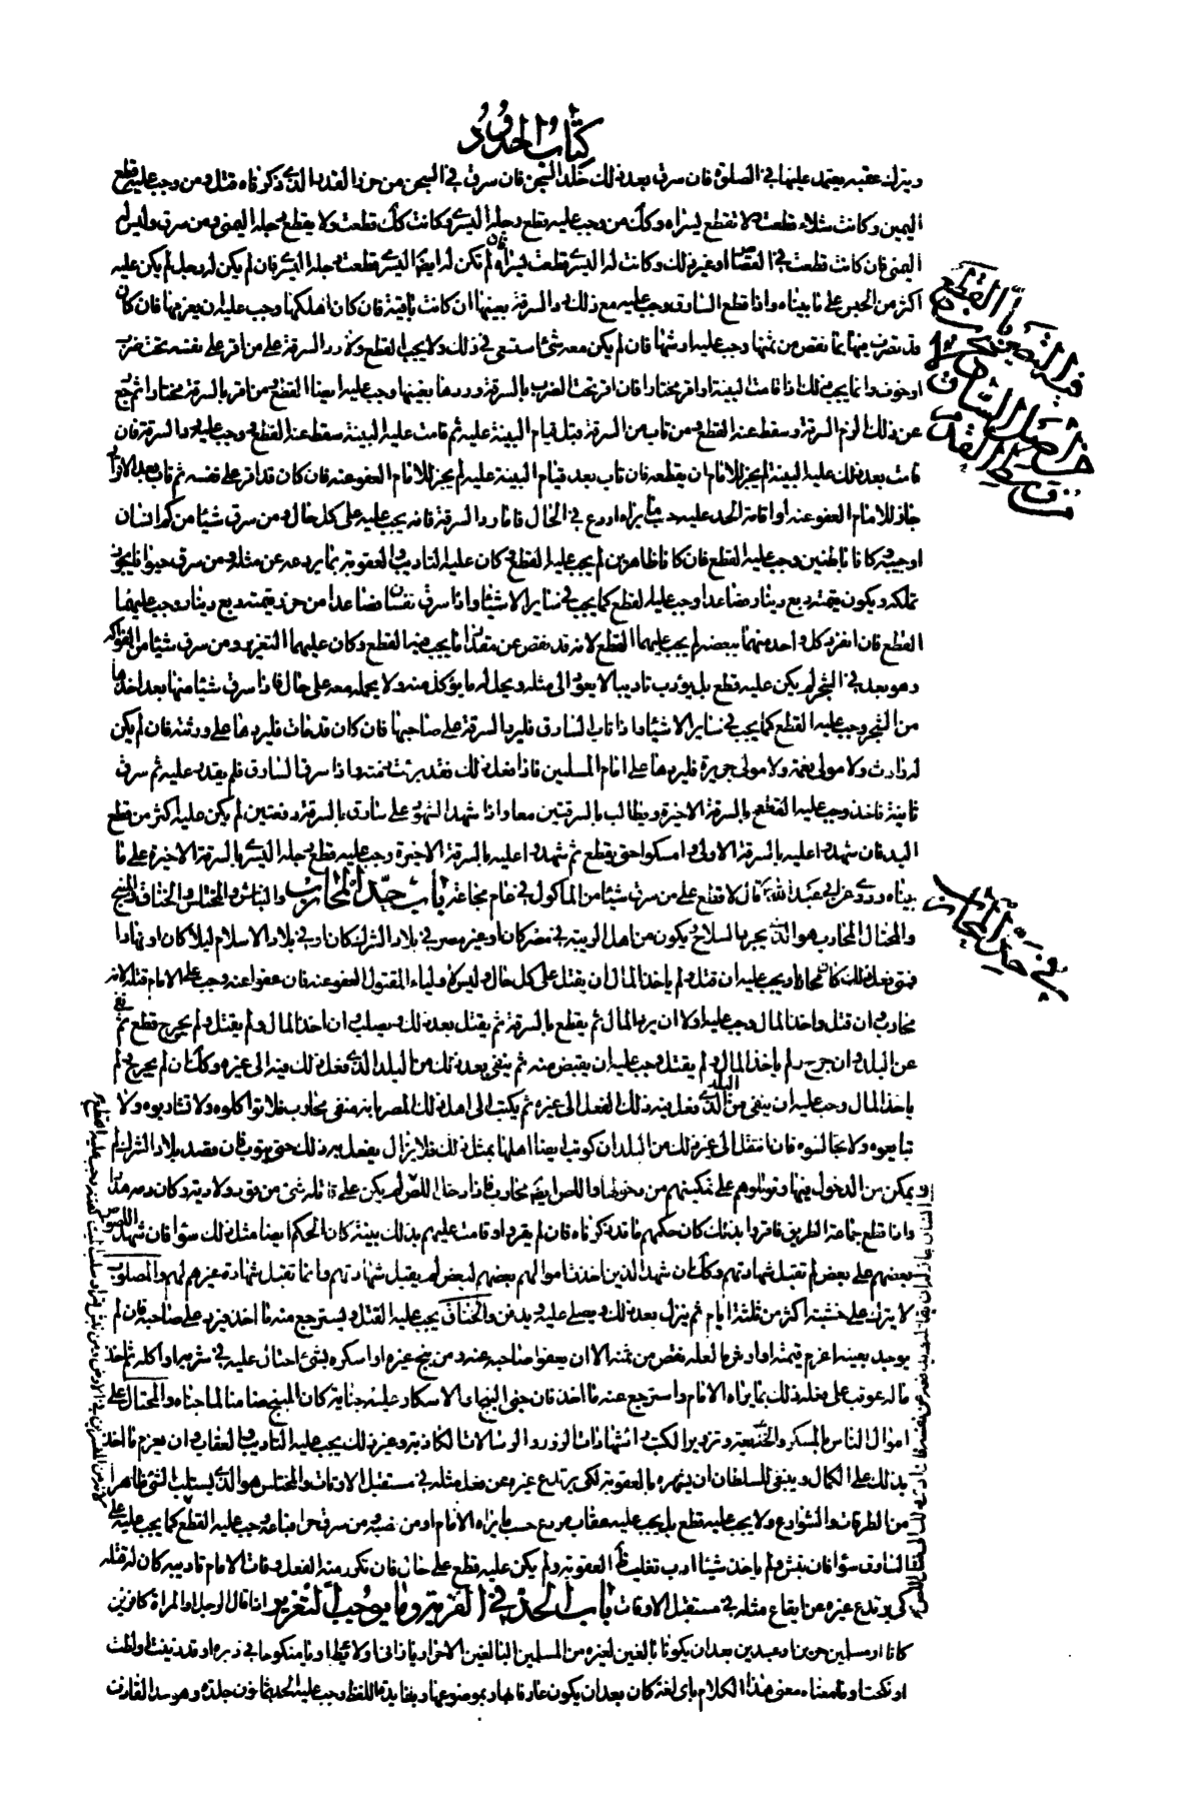 كتاب الحدود
ويترك عقبه يعتمد عليها في الصلوة فان سرق بعد ذلك خلد السجن فان سرق في السجن من حرز القدر الذي ذكرناه قتل ومن وجب عليه قطع
اليمين وكانت شلاء قطعت ولا تقطع يسراه وكذلك من وجب عليه قطع رجله اليسرى وكانت كذلك قطعت ولا يقطع رجله اليمنى ومن سرق وليس له
اليمنى فان كانت قطعت في القصاص او غير ذلك وكانت له اليسرى قطعت يسراه فان لم تكن له ايضا اليسرى قطعت رجله اليسرى فان لم يكن له رجل لم يكن عليه
اكثر من الحبس على ما بيناه واذا قطع السارق وجب عليه مع ذلك رد السرقة بعينها ان كانت باقية فان كان اهلكها وجب عليه ان يغرمها فان كان
قد تصرف فيها بما نقص من ثمنها وجب عليه ارشها فان لم يكن معه شئ استسعى في ذلك ولا يجب القطع ولا رد السرقة على من اقر على نفسه تحت ضرب
او خوف وانما يجب ذلك اذا قامت البينة او اقر مختارا فان اقر تحت الضرب بالسرقة وردها بعينها وجب عليه ايضا القطع ومن اقر بالسرقة مختارا ثم رجع
عن ذلك الزم السرقة وسقط عنه القطع ومن تاب من السرقة قبل قيام البينة عليه ثم قامت عليه البينة سقط عنه القطع ووجب عليه رد السرقة فان
قامت بعد ذلك عليه البينة لم يجز للامام ان يقطعه فان تاب بعد قيام البينة عليه لم يجز للامام العفو عنه فان كان قد اقر على نفسه ثم تاب بعد الاقرار
جاز للامام العفو عنه او اقامة الحد عليه حسب ما يراه اردع في الحال فاما رد السرقة فانه يجب عليه على كل حال ومن سرق شيئا من كم انسان
او جيبه وكانا باطنين وجب عليه القطع فان كانا ظاهرين لم يجب عليه القطع وكان عليه التاديب والعقوبة بما يردعه عن مثله ومن سرق حيوانا يجوز
تملكه ويكون قيمته ربع دينار فصاعدا وجب عليه القطع كما يجب في ساير الاشياء واذا سرق نفسان فصاعدا من حرز قيمته ربع دينار وجب عليهما
القطع فان انفرد كل واحد منهما ببعضه لم يجب عليهما القطع لانه قد نقص عن مقدار ما يجب فيه القطع وكان عليهما التعزير ومن سرق شيئا من الفواكه
وهو بعد في الشجر لم يكن عليه قطع بل يؤدب تاديبا لا يعود الى مثله ويحل له ما يؤكل منه ولا يحمله معه على حال فاذا سرق شيئا منها بعد اخذها
من الشجر وجب عليه القطع كما يجب في ساير الاشياء واذا تاب السارق فليرد السرقة على صاحبها فان كان قد مات فليردها على ورثته فان لم يكن
له وارث ولا مولى نعمة ولا مولى جريرة فليردها على امام المسلمين فاذا فعل ذلك فقد برئت ذمته واذا سرق السارق فلم يقدر عليه ثم سرق
ثانية فاخذ وجب عليه القطع بالسرقة الاخيرة ويطالب بالسرقتين معا واذا شهد الشهود على سارق بالسرقة دفعتين لم يكن عليه اكثر من قطع
اليد فان شهدوا عليه بالسرقة الاولى وامسكوا حتى يقطع ثم شهدوا عليه بالسرقة الاخيرة وجب عليه قطع رجله اليسرى بالسرقة الاخيرة على ما
بيناه وروي عن ابي عبد الله انه قال لا قطع على من سرق شيئا من الماكول في عام مجاعة باب حد المحارب والنباش والمختلس والخناق والمبنج
والمحتال المحارب هو الذي يجرد السلاح ويكون من اهل الريبة في مصر كان او غير مصر في بلاد الشرك كان او في بلاد الاسلام ليلا كان او نهارا
فمتى فعل ذلك كان محاربا ويجب عليه ان قتل ولم ياخذ المال ان يقتل على كل حال وليس لاولياء المقتول العفو عنه فان عفوا عنه وجب على الامام قتله لانه
محارب وان قتل واخذ المال وجب عليه اولا ان يرد المال ثم يقطع بالسرقة ثم يقتل بعد ذلك ويصلب وان اخذ المال ولم يقتل ولم يجرح قطع ثم نفي
عن البلد وان جرح ولم ياخذ المال ولم يقتل وجب عليه ان يقتص منه ثم ينفى بعد ذلك من البلد الذي فعل ذلك فيه الى غيره وكذلك ان لم يجرح ولم
ياخذ المال وجب عليه ان ينفى من البلد الذي فعل فيه ذلك الفعل الى غيره ثم يكتب الى اهل ذلك المصر بانه منفي محارب فلا تواكلوه ولا تشاربوه ولا
تبايعوه ولا تجالسوه فان انتقل الى غير ذلك من البلدان كوتب ايضا اهلها بمثل ذلك فلا يزال يفعل به ذلك حتى يتوب فان قصد بلاد الشرك لم
يمكن من الدخول فيها وقوتلوهم على تمكينهم من دخولها واللص ايضا محارب فاذا دخل اللص لم يكن على قاتله شئ من قود ولا دية وكان دمه هدرا
واذا قطع جماعة الطريق فاقروا بذلك كان حكمهم ما قد ذكرناه فان لم يقروا وقامت عليهم بذلك بينة كان الحكم ايضا مثل ذلك سواء فان شهد اللصوص
بعضهم على بعض لم تقبل شهادتهم وكذلك ان شهد الذين اخذت اموالهم بعضهم لبعض لم يقبل شهادتهم وانما تقبل شهادة غيرهم لهم والمصلوب
لا يترك على خشبته اكثر من ثلثة ايام ثم ينزل بعد ذلك ويصلى عليه ويدفن والخناق يجب عليه القتل ويسترجع منه ما اخذ فيرد على صاحبه فان لم
يوجد بعينه اغرم قيمته او ارش ما لعله نقص من ثمنه الا ان يعفو صاحبه عنه ومن بنج غيره او اسكره بشئ احتال عليه في شربه او اكله ثم اخذ
ماله عوقب على فعله ذلك بما يراه الامام واسترجع عنه ما اخذ فان جنى البنج او الاسكار عليه جناية كان المبنج ضامنا لما جناه والمحتال على
اموال الناس بالمكر والخديعة وتزوير الكتب والشهادات الزور والرسالات الكاذبة وغير ذلك يجب عليه التاديب والعقاب وان يغرم ما اخذ
بذلك على الكمال وينبغي للسلطان ان يشهره بالعقوبة لكي يرتدع غيره عن فعل مثله في مستقبل الاوقات والمختلس هو الذي يستلب الشئ ظاهرا
من الطرقات والشوارع ولا يجب عليه قطع بل يجب عليه عقاب مردع حسب ما يراه الامام او من نصبه ومن سرق حرا فباعه وجب عليه القطع كما يجب على
السارق سواء فان نبش ولم ياخذ شيئا ادب تغليظ العقوبة ولم يكن عليه قطع على حال فان تكرر منه الفعل وفات الامام تاديبه كان له قتله
كي يرتدع غيره عن ايقاع مثله في مستقبل الاوقات باب الحد في الفرية وما يوجب التعزير اذا قال الرجل او المراة كافرين
كانا او مسلمين حرين او عبدين بعد ان يكونا بالغين لغيره من المسلمين البالغين الاحرار يا زاني او لائط او يا منكوحا في دبره او قد زنيت او لطت
او نكحت او ما معناه معنى هذا الكلام باي لغة كان بعد ان يكون عارفا بها وبموضوعها وبفايدة اللفظ وجب عليه الحد ثمانون جلدة وهو حد القاذف
في حد المحارب